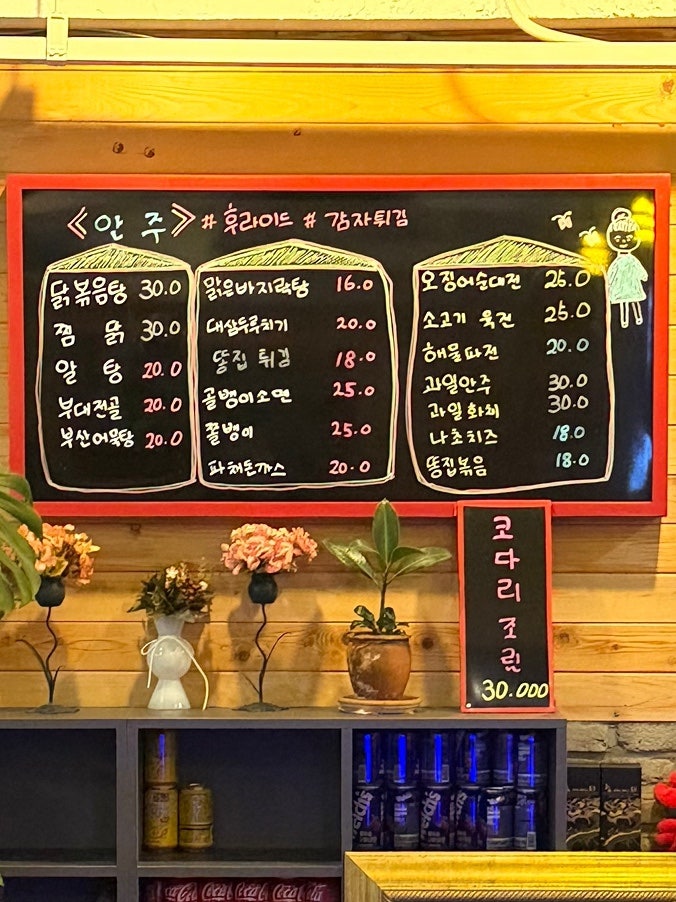 《안 주》 # 후라이드 # 감자튀김
닭볶음탕 30.0
찜 닭 30.0
알 탕 20.0
부대전골 20.0
부산어묵탕 20.0
맑은바지락탕 16.0
대삼두루치기 20.0
똥집 튀김 18.0
골뱅이소면 25.0
쫄뱅이 25.0
파채돈까스 20.0
오징어순대전 25.0
소고기 육전 25.0
해물파전 20.0
과일안주 30.0
과일화채 30.0
나초치즈 18.0
똥집볶음 18.0
코다리조림
30.000